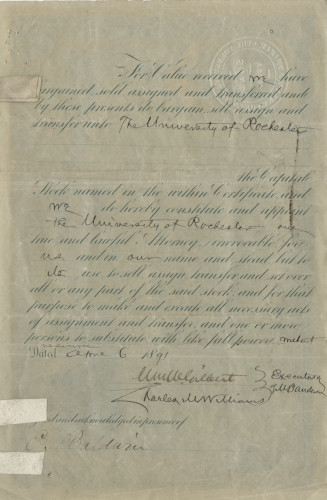 For Value received we have
bargained, sold, assigned and transferred and
by these presents do bargain, sell, assign and
transfer unto The University of Rochester
the Capital
Stock named in the within Certificate, and
we do hereby constitute and appoint
the University of Rochester our
true and lawful Attorney, irrevocable for
us and in our name and stead but to
its use, to sell, assign, transfer and set over
all or any part of the said stock, and for that
purpose to make and execute all necessary acts
of assignment and transfer, and one or more
persons to substitute with like full power, without
recourse
Dated June 6 1891
Executors
Charles M Williams
Signed and acknowledged in presence of